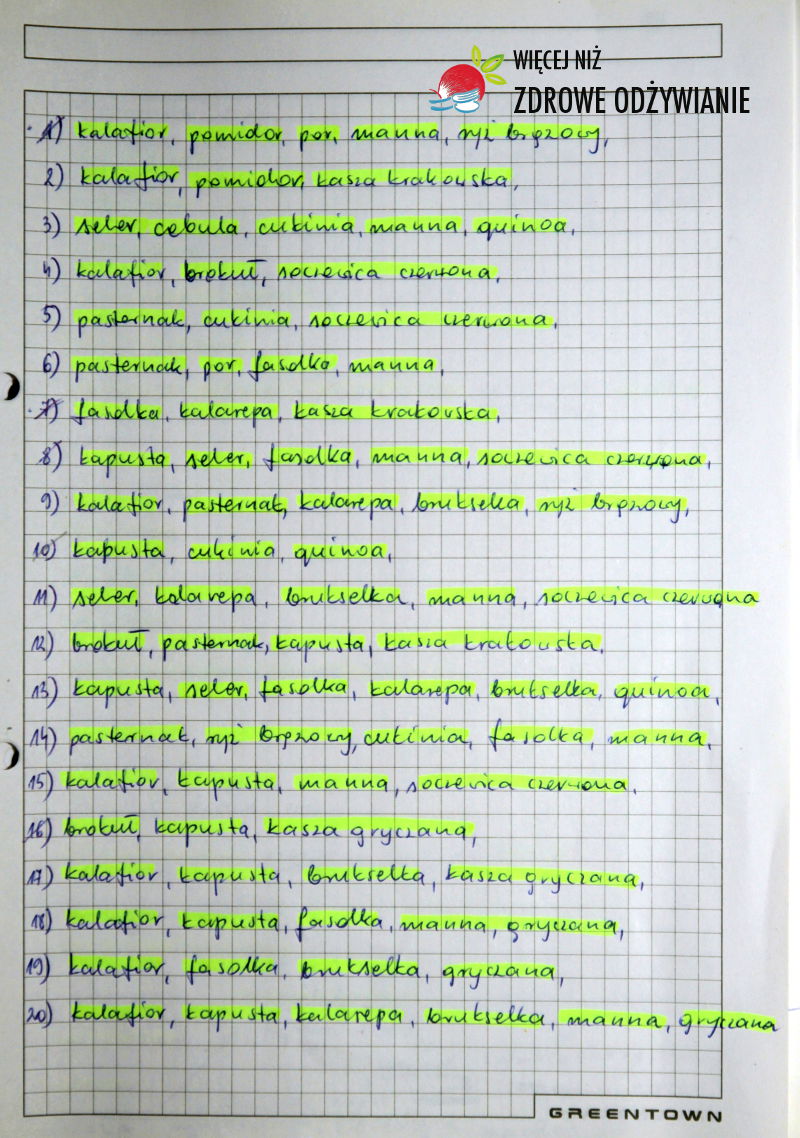 WIĘCEJ NIŻ
ZDROWE ODŻYWIANIE
1) kalafior, pomidor, por, manna, ryż brązowy,
2) kalafior, pomidor, kasza krakowska,
3) seler, cebula, cukinia, manna, quinoa,
4) kalafior, brokuł, soczewica czerwona,
5) pasternak, cukinia, soczewica czerwona,
6) pasternak, por, fasolka, manna,
7) fasolka, kalarepa, kasza krakowska,
8) kapusta, seler, fasolka, manna, soczewica czerwona,
9) kalafior, pasternak, kalarepa, brukselka, ryż brązowy,
10) kapusta, cukinia, quinoa,
11) seler, kalarepa, brukselka, manna, soczewica czerwona
12) brokuł, pasternak, kapusta, kasza krakowska,
13) kapusta, seler, fasolka, kalarepa, brukselka, quinoa,
14) pasternak, ryż brązowy, cukinia, fasolka, manna,
15) kalafior, kapusta, manna, soczewica czerwona,
16) brokuł, kapusta, kasza gryczana,
17) kalafior, kapusta, brukselka, kasza gryczana,
18) kalafior, kapusta, fasolka, manna, gryczana,
19) kalafior, fasolka, brukselka, gryczana,
20) kalafior, kapusta, kalarepa, brukselka, manna, gryczana
GREENTOWN